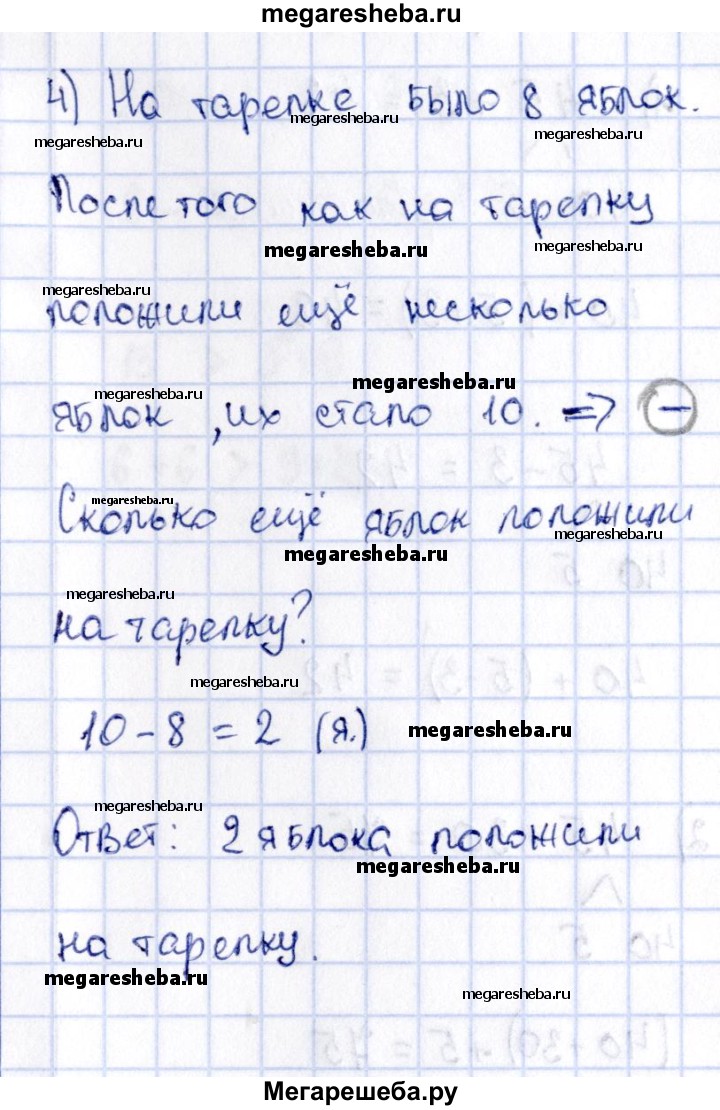 megaresheba.ru
4) На тарелке было 8 яблок.
megaresheba.ru
megaresheba.ru
megaresheba.ru
После того как на тарелку
megaresheba.ru
megaresheba.ru
megaresheba.ru
положили ещё несколько
megaresheba.ru
megaresheba.ru
яблок, их стало 10. => (–)
megaresheba.ru
Сколько ещё яблок положили
megaresheba.ru
megaresheba.ru
megaresheba.ru
на тарелку?
megaresheba.ru
10 - 8 = 2 (я.)
megaresheba.ru
megaresheba.ru
Ответ: 2 яблока положили
megaresheba.ru
на тарелку.
megaresheba.ru
megaresheba.ru
Мегарешеба.ру